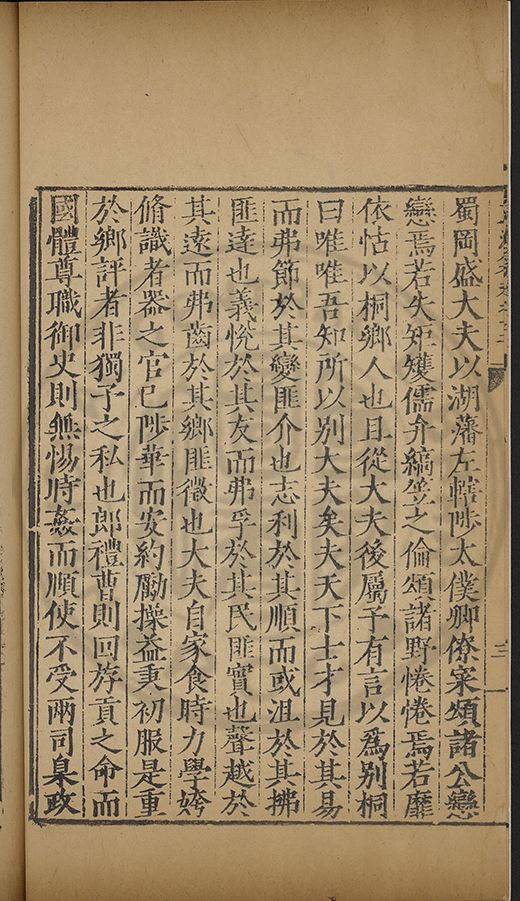 蜀岡盛大夫以湖藩左轄陟太僕卿僚寀頌諸公戀
戀焉若失矩矱儒弁縞笠之倫頌諸野惓惓焉若靡
依怙以桐鄉人也且從大夫後屬予有言以爲別桐
曰唯唯吾知所以別大夫矣夫天下士才見於其易
而弗節於其變匪介也志利於其順而或沮於其拂
匪達也義悅於其友而弗孚於其民匪實也聲越於
其遠而弗齒於其鄉匪徵也大夫自家食時力學姱
脩識者器之官已陟華而安約勵操益秉初服是重
於鄉評者非獨予之私也郎禮曹則回斿貢之命而
國體尊職御史則無惕時姦而順使不受兩司臬政
三